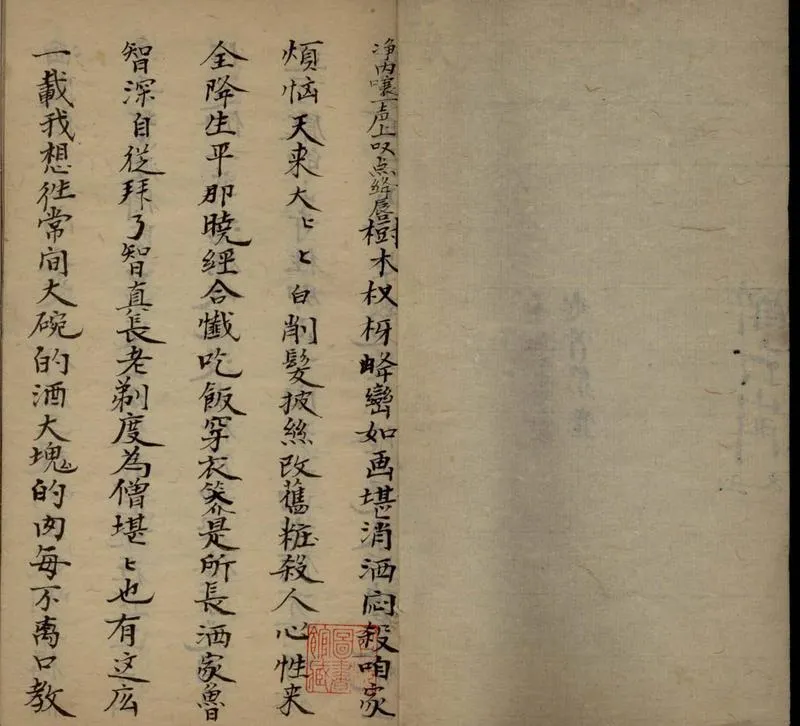 净内嚷一声上叹点絳唇樹木杈枒峰巒如画堪消洒闷殺咱家
煩恼天来大匕匕白削髮披絲改舊粧殺人心性来
全降生平那曉經合懺吃飯穿衣筭是所長洒家魯
智深自從拜了智真長老剃度為僧堪匕也有这庅
一載我想徃常间大碗的酒大塊的肉每不离口教
圖書
館藏